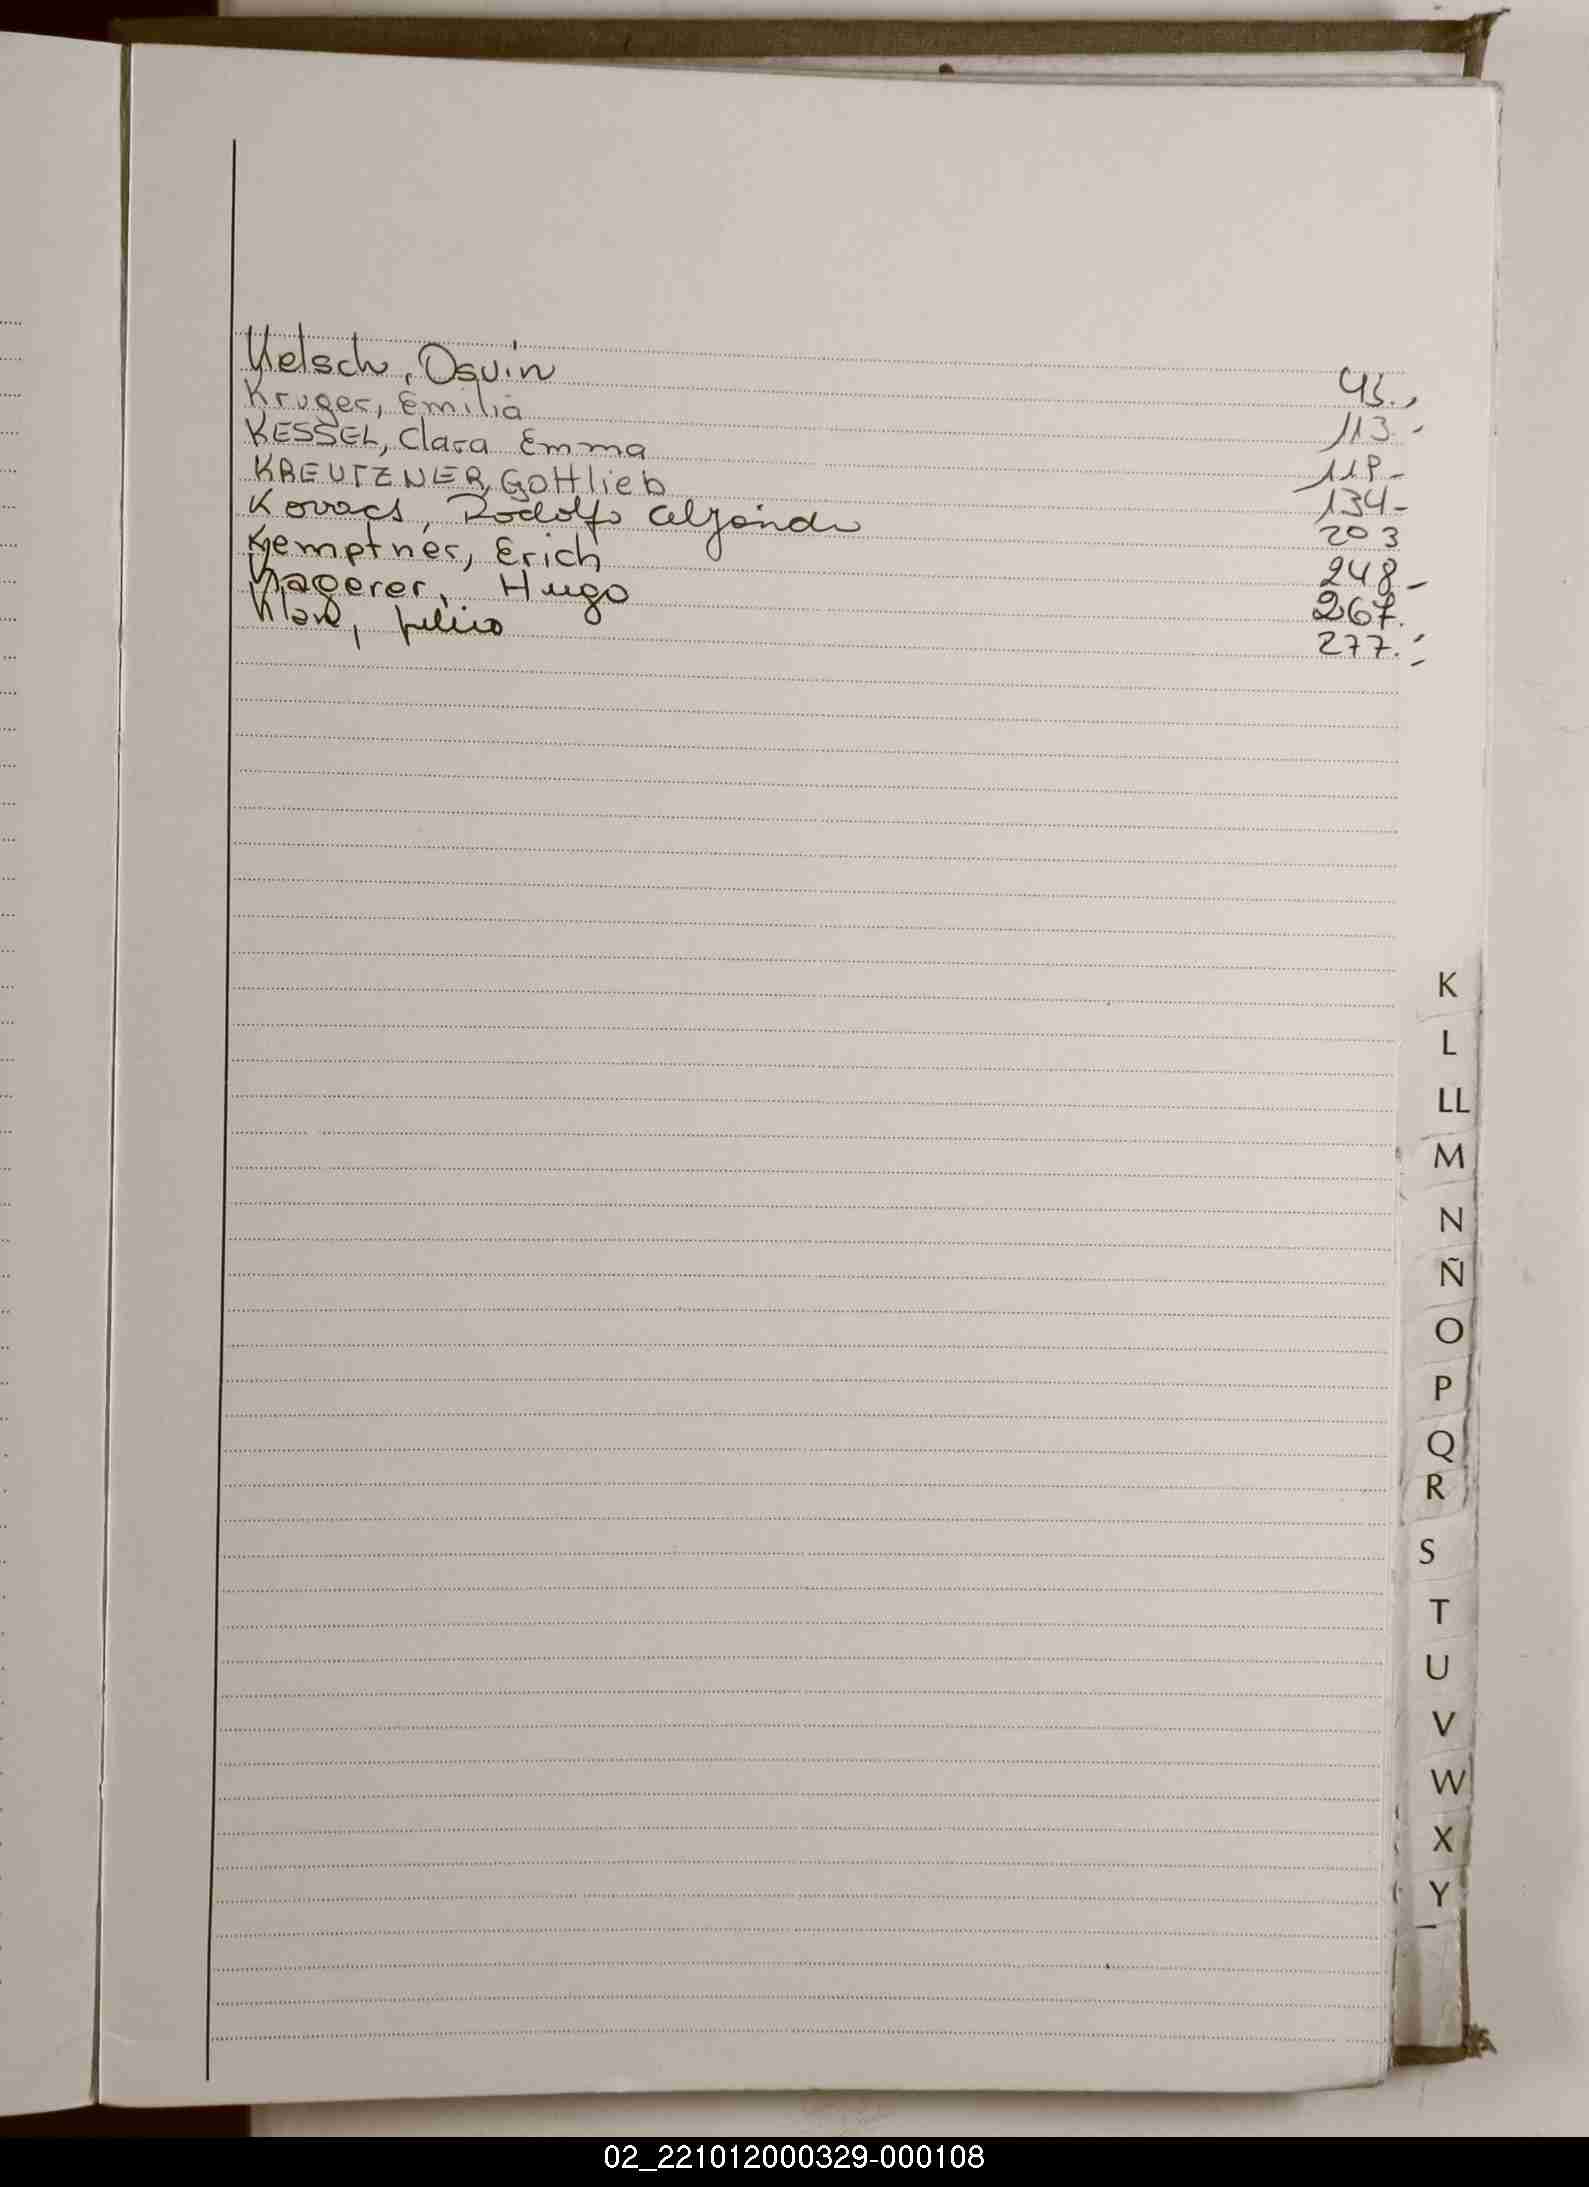 Kelsch, Osvin 45.,
Kruger, Emilia 113.-
KESSEL, Clara Emma 118-
KREUTZNER, Gottlieb 134-
Kovacs, Rodolfo Alejandro 203
Kemptner, Erich 248-
Kagerer, Hugo 267.
277.-
K
L
LL
M
N
Ñ
O
P
Q
R
S
T
U
V
W
X
Y
02_221012000329-000108